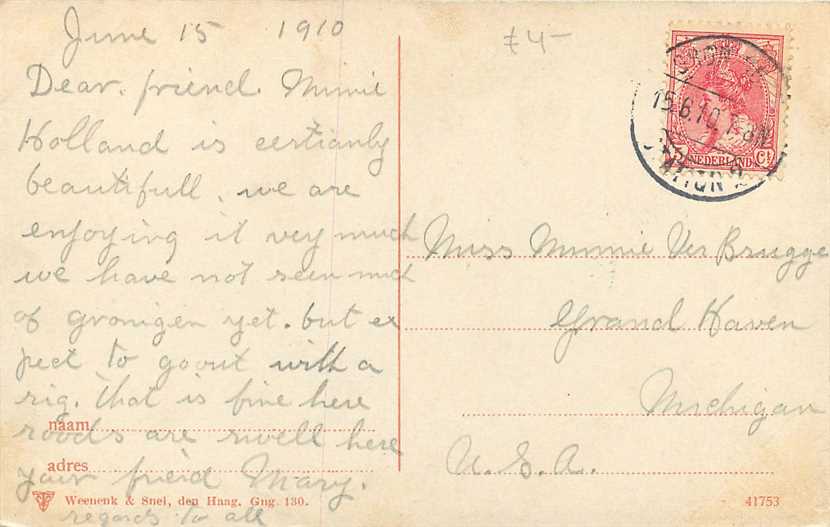 June 15 1910
Dear. friend. Minnie
Holland is certianly
beautifull. we are
enjoying it very much
we have not seen much
of gronigen yet. but ex
pect to goout with a
rig. That is fine here
roods are swell here
your frierd Mary.
regards to all
naam
adres
Weenenk & Snel, den Haag. Gng. 130.
£4-
15.6.10.7-8N
NEDERLAND
Ct
Miss Minnie Ver Brugge
Grand Haven
Michigan
U.S.A.
41753